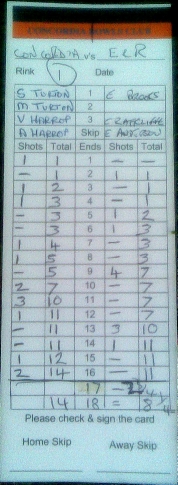 CONCORDIA BOWLS CLUB
CONCORDIA vs ECR
Rink 1 Date
S TURTON 1 E BROOKS
M TURTON 2
V HARROP 3 RATCLIFFE
A HARROP Skip
Shots Total Ends Shots Total
1 1 1 — —
— 1 2 1 1
1 2 3 — 1
1 3 4 — 1
— 3 5 1 2
— 3 6 1 3
1 4 7 — 3
1 5 8 — 3
— 5 9 4 7
2 7 10 — 7
3 10 11 — 7
1 11 12 — 7
— 11 13 3 10
— 11 14 1 11
1 12 15 — 11
2 14 16 — 11
17
14 18 =
Please check & sign the card
Home Skip Away Skip